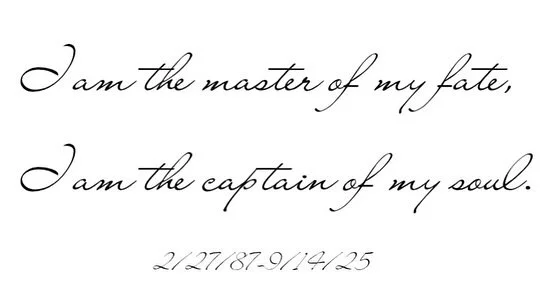 I am the master of my fate,
I am the captain of my soul.
2/27/87-9/14/25